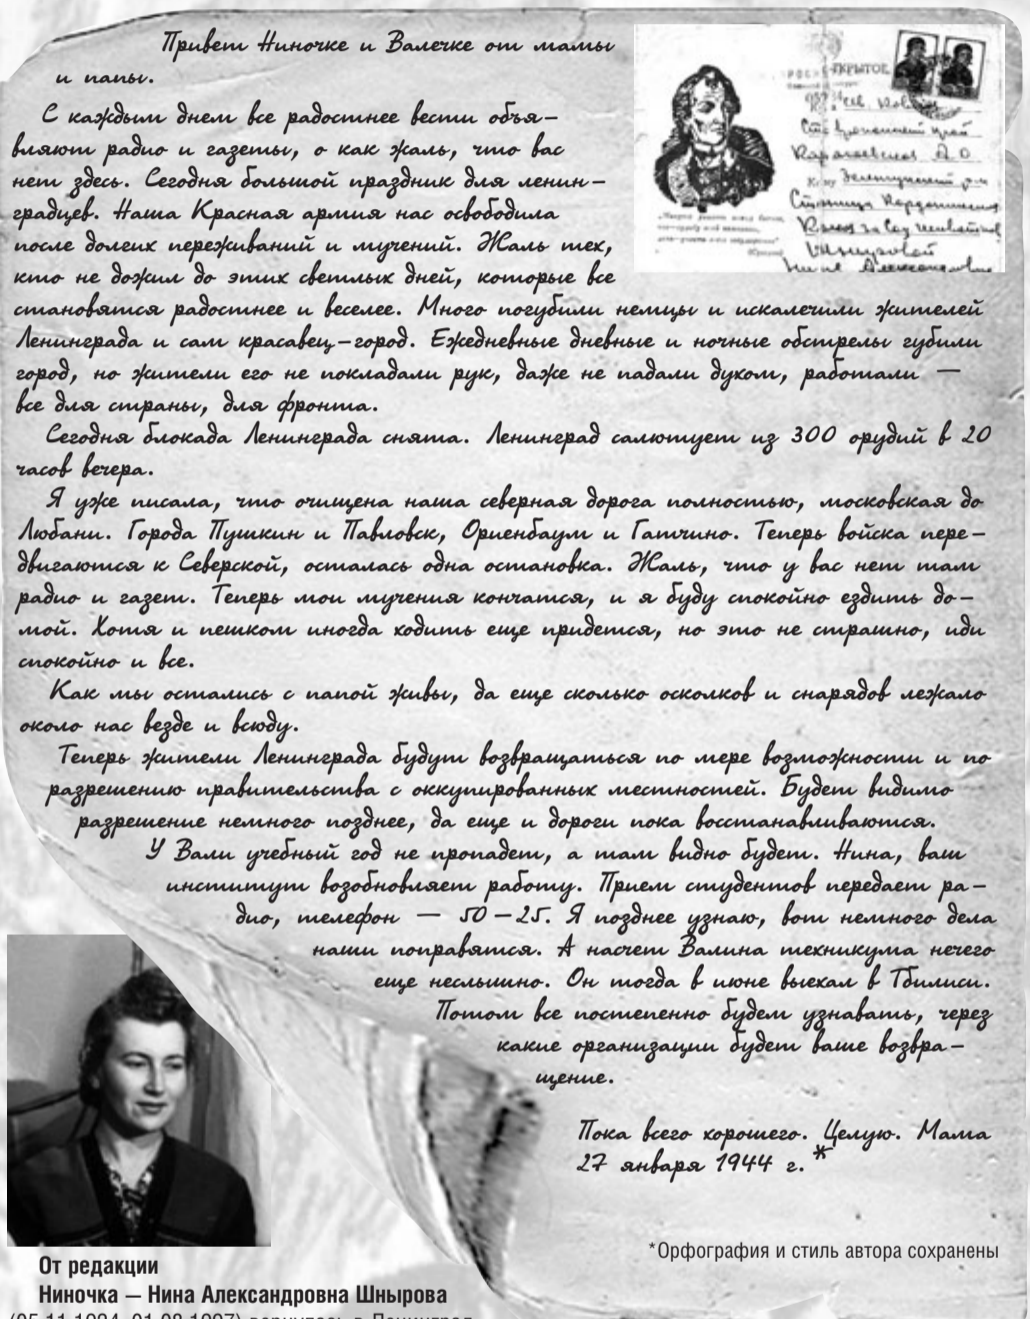 Привет Ниночке и Валечке от мамы
и папы.
С каждым днем все радостнее вести объя-
вляют радио и газеты, о как жаль, что вас
нет здесь. Сегодня большой праздник для ленин-
градцев. Наша Красная армия нас освободила
после долгих переживаний и мучений. Жаль тех,
кто не дожил до этих светлых дней, которые все
становятся радостнее и веселее. Много погубили немцы и искалечили жителей
Ленинграда и сам красавец-город. Ежедневные дневные и ночные обстрелы губили
город, но жители его не покладали рук, даже не падали духом, работали —
все для страны, для фронта.
Сегодня блокада Ленинграда снята. Ленинград салютует из 300 орудий в 20
часов вечера.
Я уже писала, что очищена наша северная дорога полностью, московская до
Любани. Города Пушкин и Павловск, Ориенбаум и Гатчино. Теперь войска пере-
двигаются к Северской, осталась одна остановка. Жаль, что у вас нет там
радио и газет. Теперь мои мучения кончатся, и я буду спокойно ездить до-
мой. Хотя и пешком иногда ходить еще придется, но это не страшно, иди
спокойно и все.
Как мы остались с папой живы, да еще сколько осколков и снарядов лежало
около нас везде и всюду.
Теперь жители Ленинграда будут возвращаться по мере возможности и по
разрешению правительства с оккупированных местностей. Будет видимо
разрешение немного позднее, да еще и дороги пока восстанавливаются.
У Вали учебный год не пропадет, а там видно будет. Нина, ваш
институт возобновляет работу. Прием студентов передает ра-
дио, телефон — 50-25. Я позднее узнаю, вот немного дела
наши поправятся. А насчет Валина техникума нечего
еще неслышно. Он тогда в июне выехал в Тбилиси.
Потом все постепенно будем узнавать, через
какие организации будет ваше возвра-
щение.
Пока всего хорошего. Целую. Мама
27 января 1944 г.*
*Орфография и стиль автора сохранены
От редакции
Ниночка — Нина Александровна Шнырова